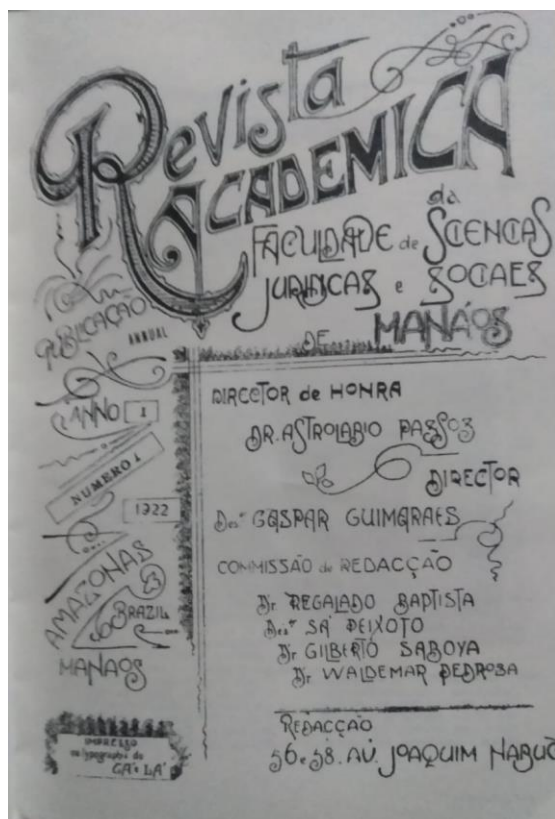 Revista
Academica
da
Faculdade de Sciencias
Juridicas e Sociaes
de Manáos
Publicação
annual
Anno 1
Numero 1
1922
Amazonas
Brazil
Manaos
Impresso
na typographia do
Cá e Lá
Director de Honra
Dr. Astrolabio Passos
Director
Des.or Gaspar Guimarães
Commissão de Redacção
Dr. Regalado Baptista
Des.or Sá Peixoto
Dr. Gilberto Saboya
Dr. Waldemar Pedrosa
Redacção
56 e 58. Av. Joaquim Nabuc